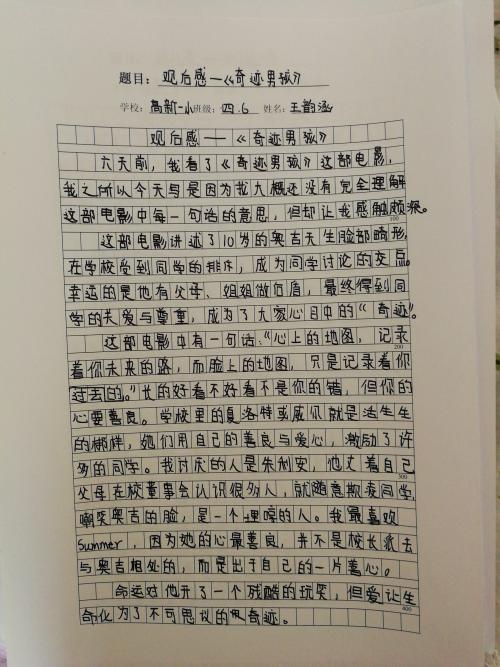 题目：观后感—《奇迹男孩》
学校：高新一小 班级：四.6 姓名：王韵涵
观后感——《奇迹男孩》
六天前，我看了《奇迹男孩》这部电影，
我之所以今天写是因为我大概还没有完全理解
这部电影中每一句话的意思，但却让我感触颇深。
100
这部电影讲述了10岁的奥吉天生脸部畸形，
在学校受到同学的排斥，成为同学讨论的交点。
幸运的是他有父母、姐姐做后盾，最终得到同
学的关爱与尊重，成为了大家心目中的“奇迹”。
这部电影中有一句话：“心上的地图，记录
200
着你未来的路，而脸上的地图，只是记录着你
过去的。”长的好看不好看不是你的错，但你的
心要善良。学校里的夏洛特或威尔就是活生生
的榜样，她们用自己的善良与爱心，激励了许
多的同学。我讨厌的人是朱利安，他仗着自己
300
父母在校董事会认识很多人，就随意欺凌同学，
嘲笑奥吉的脸，是一个的人。我最喜欢
Summer，因为她的心最善良，并不是校长派去
与奥吉相处的，而是出于自己的一片善心。
命运对他开了一个残酷的玩笑，但爱让生
400
命化为了不可思议的奇迹。